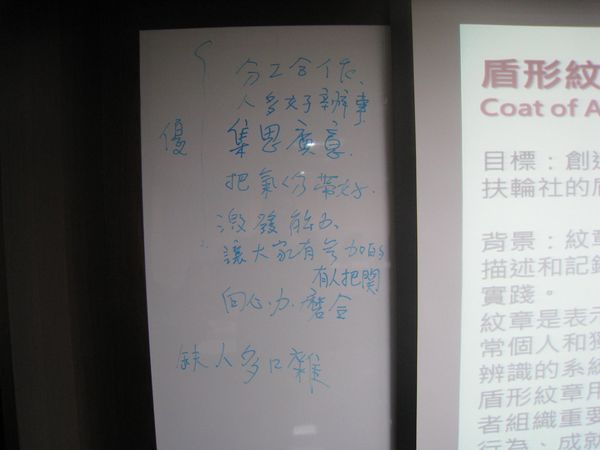 優
分工合作、
人多好辦事
集思廣意
把氣氛帶好.
激發能力.
讓大家有參加的
有人把關
向心力.磨合
缺 人多口雜
盾形紋
Coat of A
目標：創造
扶輪社的盾
背景：紋章
描述和記錄
實踐。
紋章是表示
常個人和獨
辨識的系統
盾形紋章用
者組織重要
行為、成就